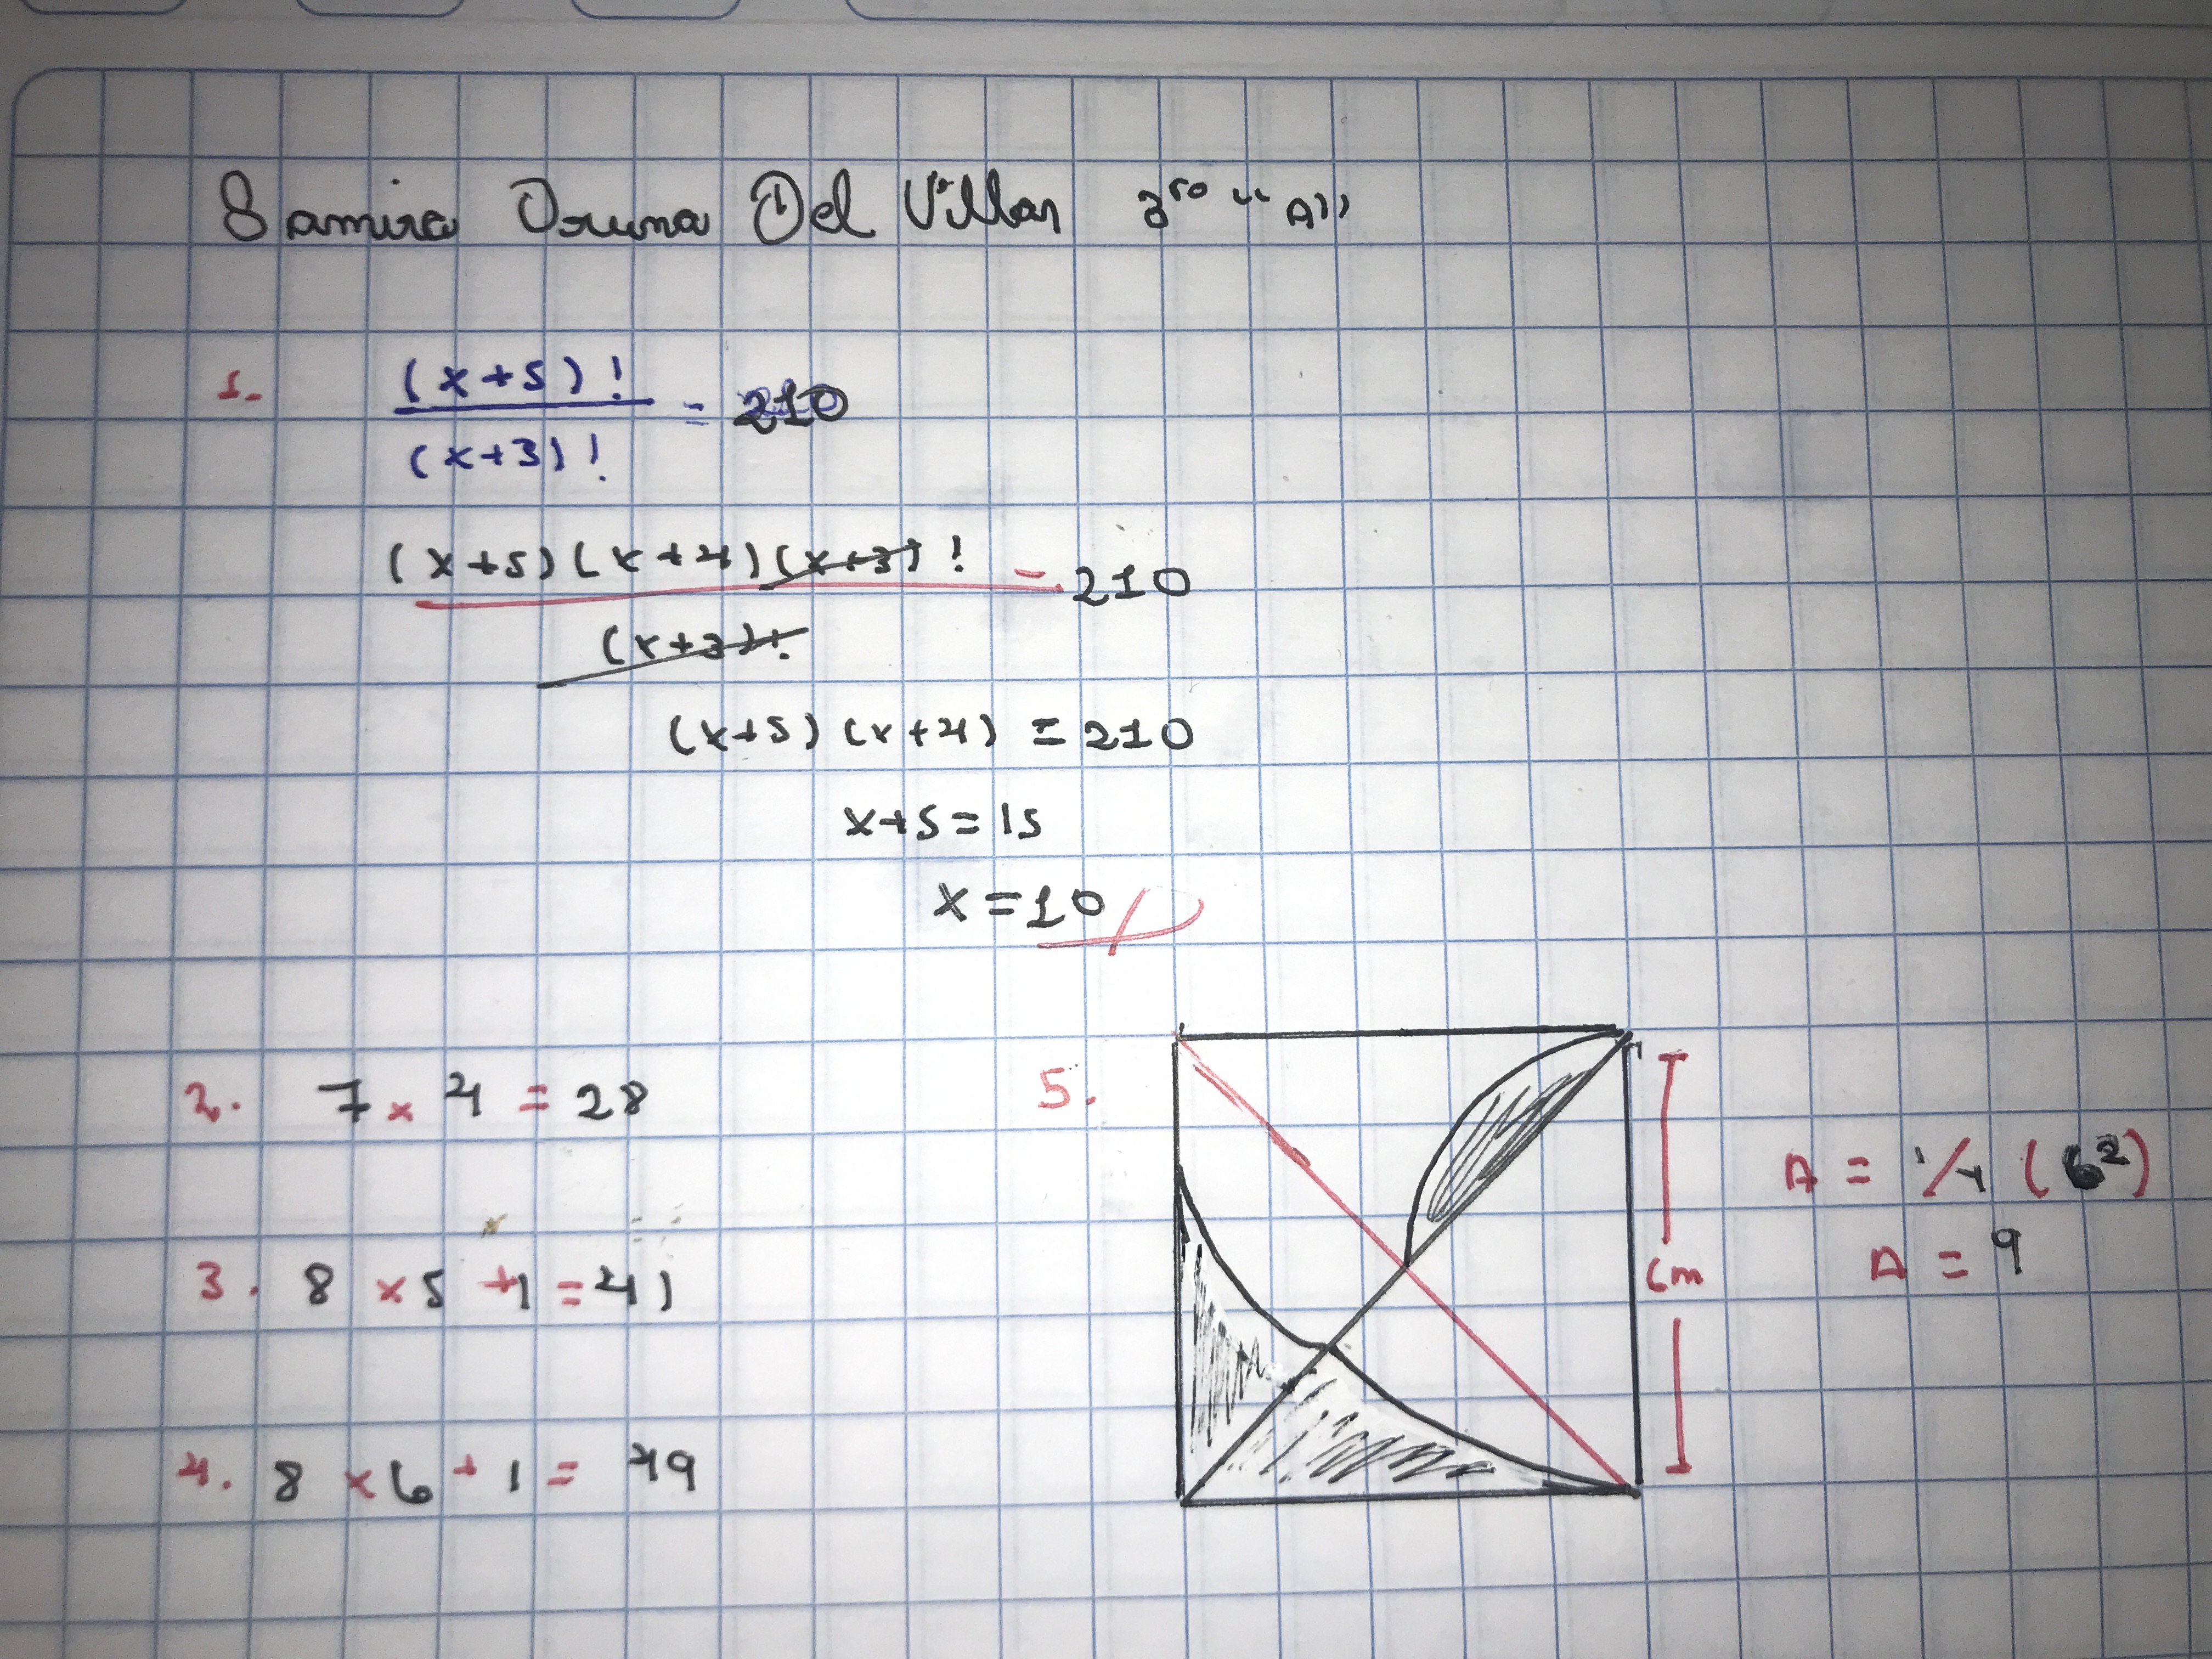 Samira Oruna Del Villar 3ro "A"
1- (x+5)! = 210
(x+3)!
(x+5)(x+4)(x+3)! = 210
(x+3)!
(x+5)(x+4) = 210
x+5=15
x=10
2. 7 x 4 = 28
3. 8 x 5 +1 = 41
4. 8 x 6 + 1 = 49
5.
6m
A = 1/4 (6²)
A = 9